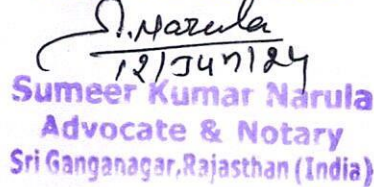 S. Narula
12/Jun/24
Sumeer Kumar Narula
Advocate & Notary
Sri Ganganagar,Rajasthan (India)